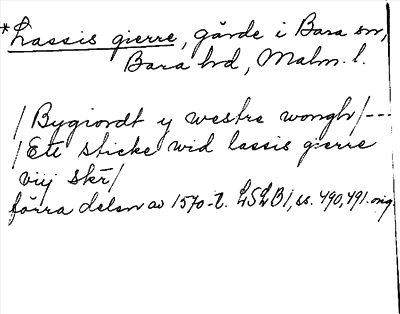 *Lassis gierre, gärde i Bara sn,
Bara hd, Malm. l.
/Bygiordt y westre wongh/---
/Ete sticke wid lassis gierre
viij skr/
förra delen av 1570-t. LSLB1, ss. 490, 491. orig.